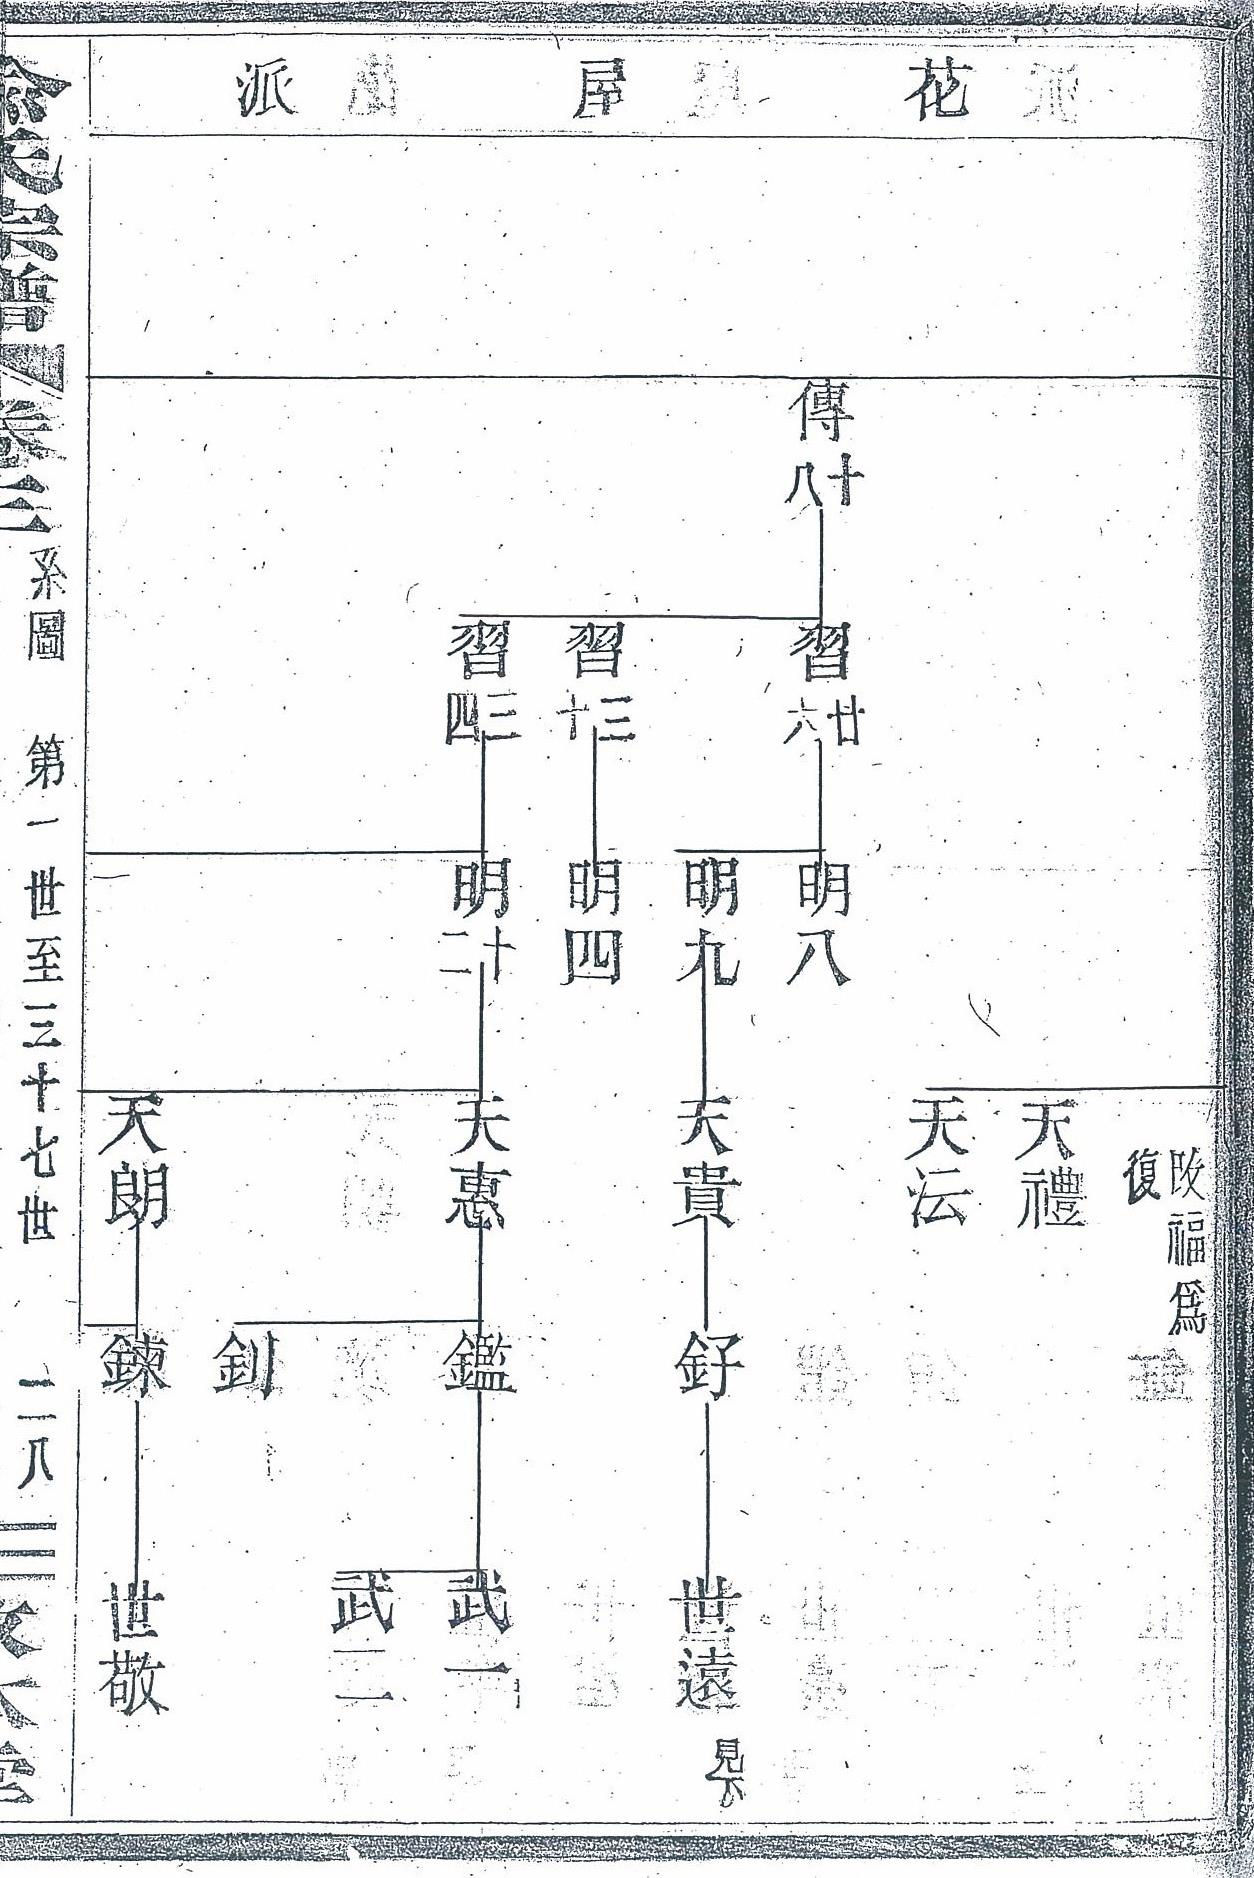 花屋派
傳十八
習廿六
習三十
習三四
明八
明九
明四
明十二
改福爲
復
天禮
天沄
天貴
天惠
天朗
釨
鑑
釗
鍊
世遠
見下
武一
武二
世敬
宗譜
卷三
系圖
第一世至三十七世
二八